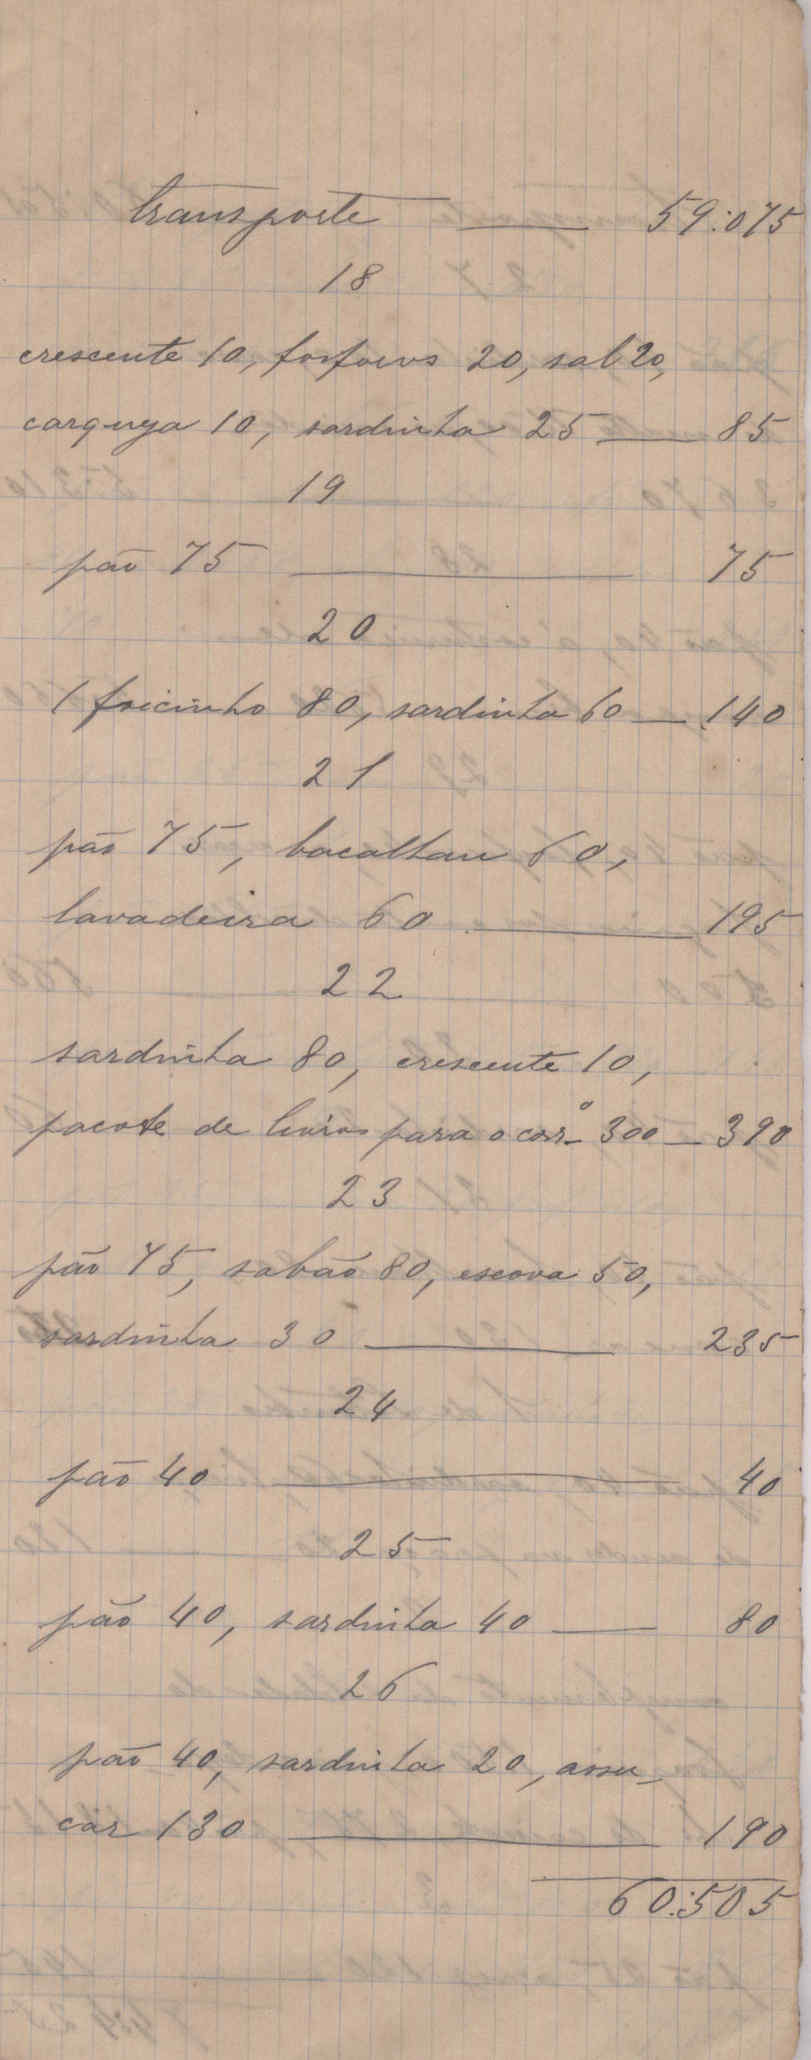 transporte — 59:075
18
crescente 10, fosforos 20, sal 20,
carqueja 10, sardinha 25 — 85
19
pão 75 — 75
20
1 foicinho 80, sardinha 60 — 140
21
pão 75, bacalhau 60,
lavadeira 60 — 195
22
sardinha 80, crescente 10,
pacote de livros para o corrº 300 — 390
23
pão 75, sabão 80, escova 50,
sardinha 30 — 235
24
pão 40 — 40
25
pão 40, sardinha 40 — 80
26
pão 40, sardinha 20, assu-
car 130 — 190
60:505